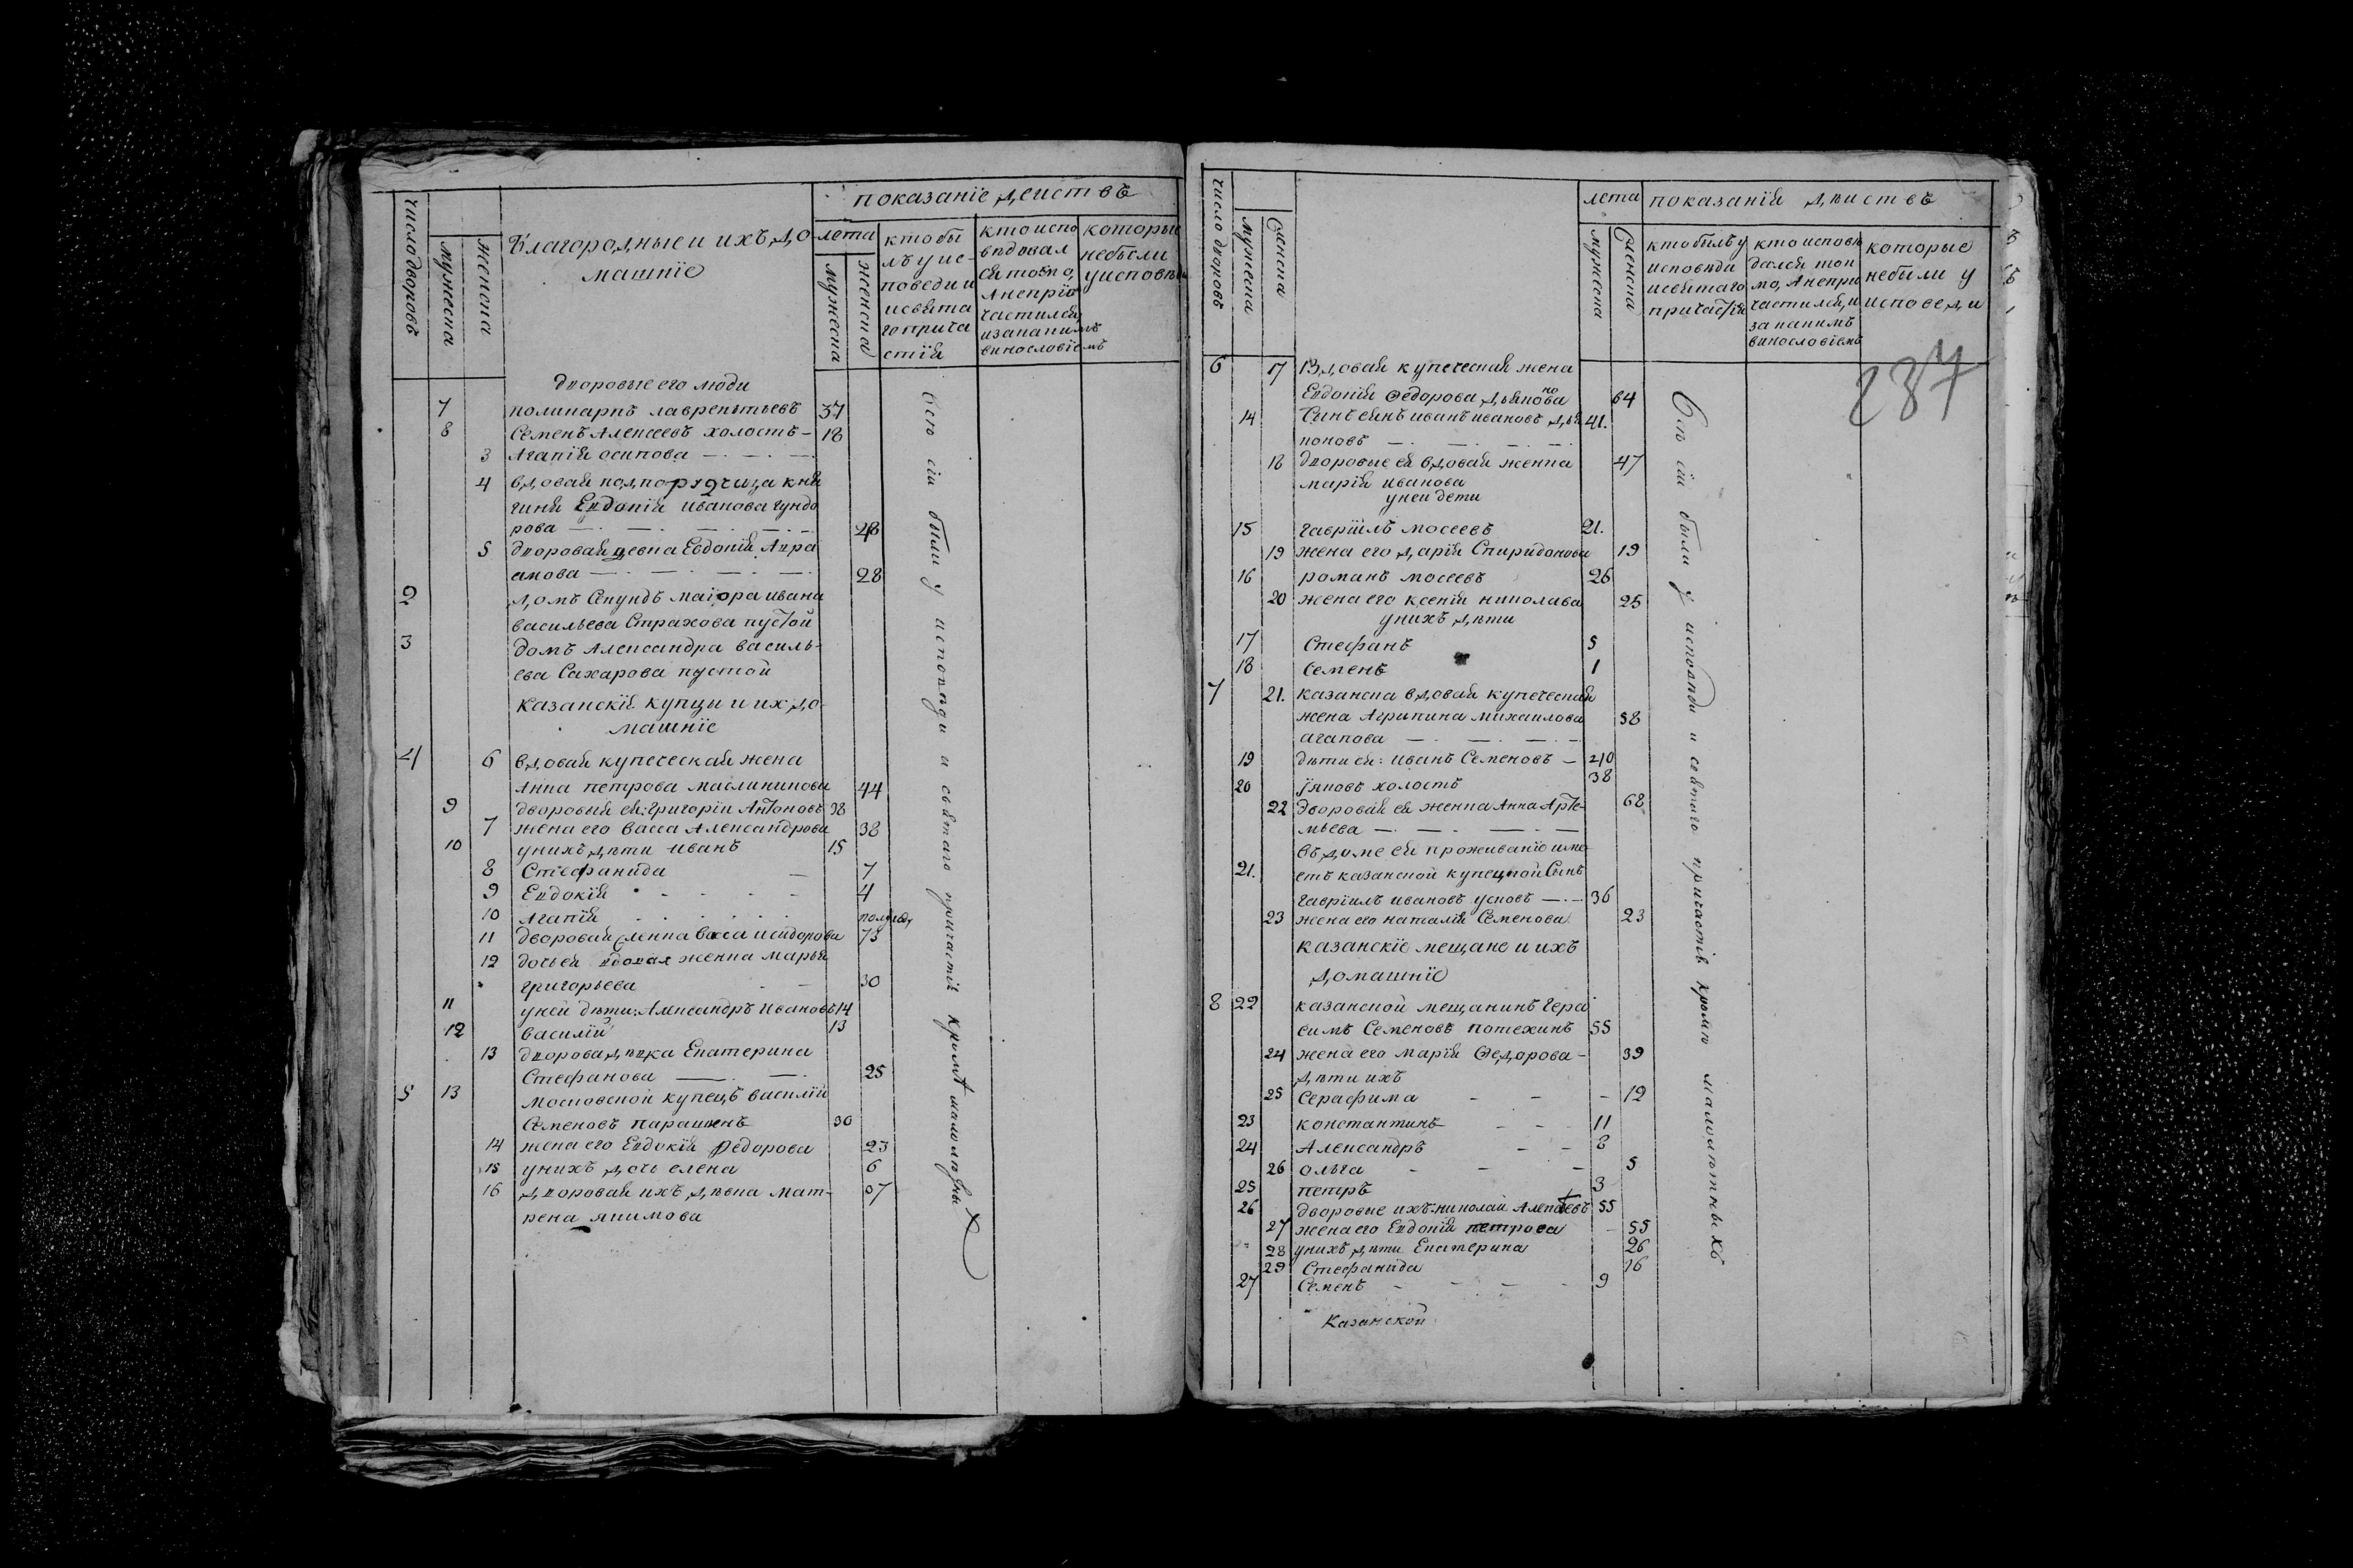 число дворовъ
мужеска
женска
Благородные и ихъ до
машнїе
показанїе деиствъ
лета
мужеска
женска
кто бы
лъ у ис
поведи и
исвята
го прича
стїя
кто испо
ведовал
ся токмо,
А непрїо
частился,
изакакимъ
винословїемъ
которые
небыли
уисповѣди
Дворовые его люди
7 поликарпъ лаврентьевъ 37
8 Семенъ Алексеевъ холостъ – 18
3 Агапїя осипова
4 вдовая подпоручица кня
гиня Евдокїя иванова гундо
рова 28
5 дворовая девка Евдокїя Авра
амова 28
2 домъ Секундъ маїора ивана
васильева Страхова пустой
3 домъ Александра василь-
ева Сахарова пустой
казанскїя купцы и их до-
машнїе
4 6 вдовая купеческая жена
Анна петрова масленикова 44
9 дворовия ея: Григорїи Антоновъ 38
7 жена его васса Александрова 38
10 унихъ дѣти иванъ 15
8 Стефанида – 7
9 Евдокїя 4
10 Агапїя полугоду
11 дворовая женка васса исидорова 73
12 дочь ея вдовая женка марья
григорьева 30
11 уней дѣти: Александръ ивановъ 14
12 василїй 13
13 дворова дѣвка Екатерина
Стефанова 25
5 13 московской купецъ василїй
Семеновъ паращенъ 30
14 жена его Евдокїя федорова 23
15 унихъ дочь елена 6
16 дворовая ихъ дѣвка мат-
рена якимова 07
всѣ сїи были у исповѣди и святаго причастїя кромѣ малолѣтны х
число дворовъ
мужеска
женска
лета
показанїя дѣиствъ
мужеска
женска
кто былъ у
исповѣди
исвятаго
причастїя
кто исповѣ
дался ток
мо, А непри
частился, и
за какимъ
винословїемъ
которые
небыли у
исповеди
237
6 17 Вдовая купеческая жена
Евдокїя Федорова дьяконова 64
14 Сынъ ея иванъ ивановъ дья 41.
коновъ
18 дворовые ея вдовая женка 47
марїя иванова
уней дети
15 гаврїилъ мосеевъ 21.
19 жена его дарїя Спиридонова 19
16 романъ мосеевъ 26
20 жена его ксенїя николава 25
унихъ дѣти
17 Стефанъ 5
18 Семенъ 1
7 21. казанска вдовая купеческая
жена Агрипина михаилова 58
агапова
19 дѣти ея: иванъ Семеновъ – 40
20 їаковъ холостъ 38
22 дворовая ея женка Анна Арте- 68
мьева
въ доме ея проживанїе име
21. етъ казанской купецкой Сынъ
гаврїилъ ивановъ усковъ 36
23 жена его наталїя Семенова 23
казанскїе мещане и ихъ
домашнїе
8 22 казанской мещанинъ гера
симъ Семеновъ потехинъ 55
24 жена его марїя Федорова – 39
дѣти ихъ
25 Серафима – – – 12
23 константинъ – – 11
24 Александръ – – 8
26 ольга – – – 5
25 петръ 3
26 дворовые ихъ: николай Алексеевъ 55
27 жена его Евдокїя петрова – 55
28 унихъ дѣти Екатерина 26
29 Стефанида 16
27 Семенъ – – – – 9
Казанской
всѣ сїи были у исповѣди и святаго причастїя кромѣ малолѣтныхъ